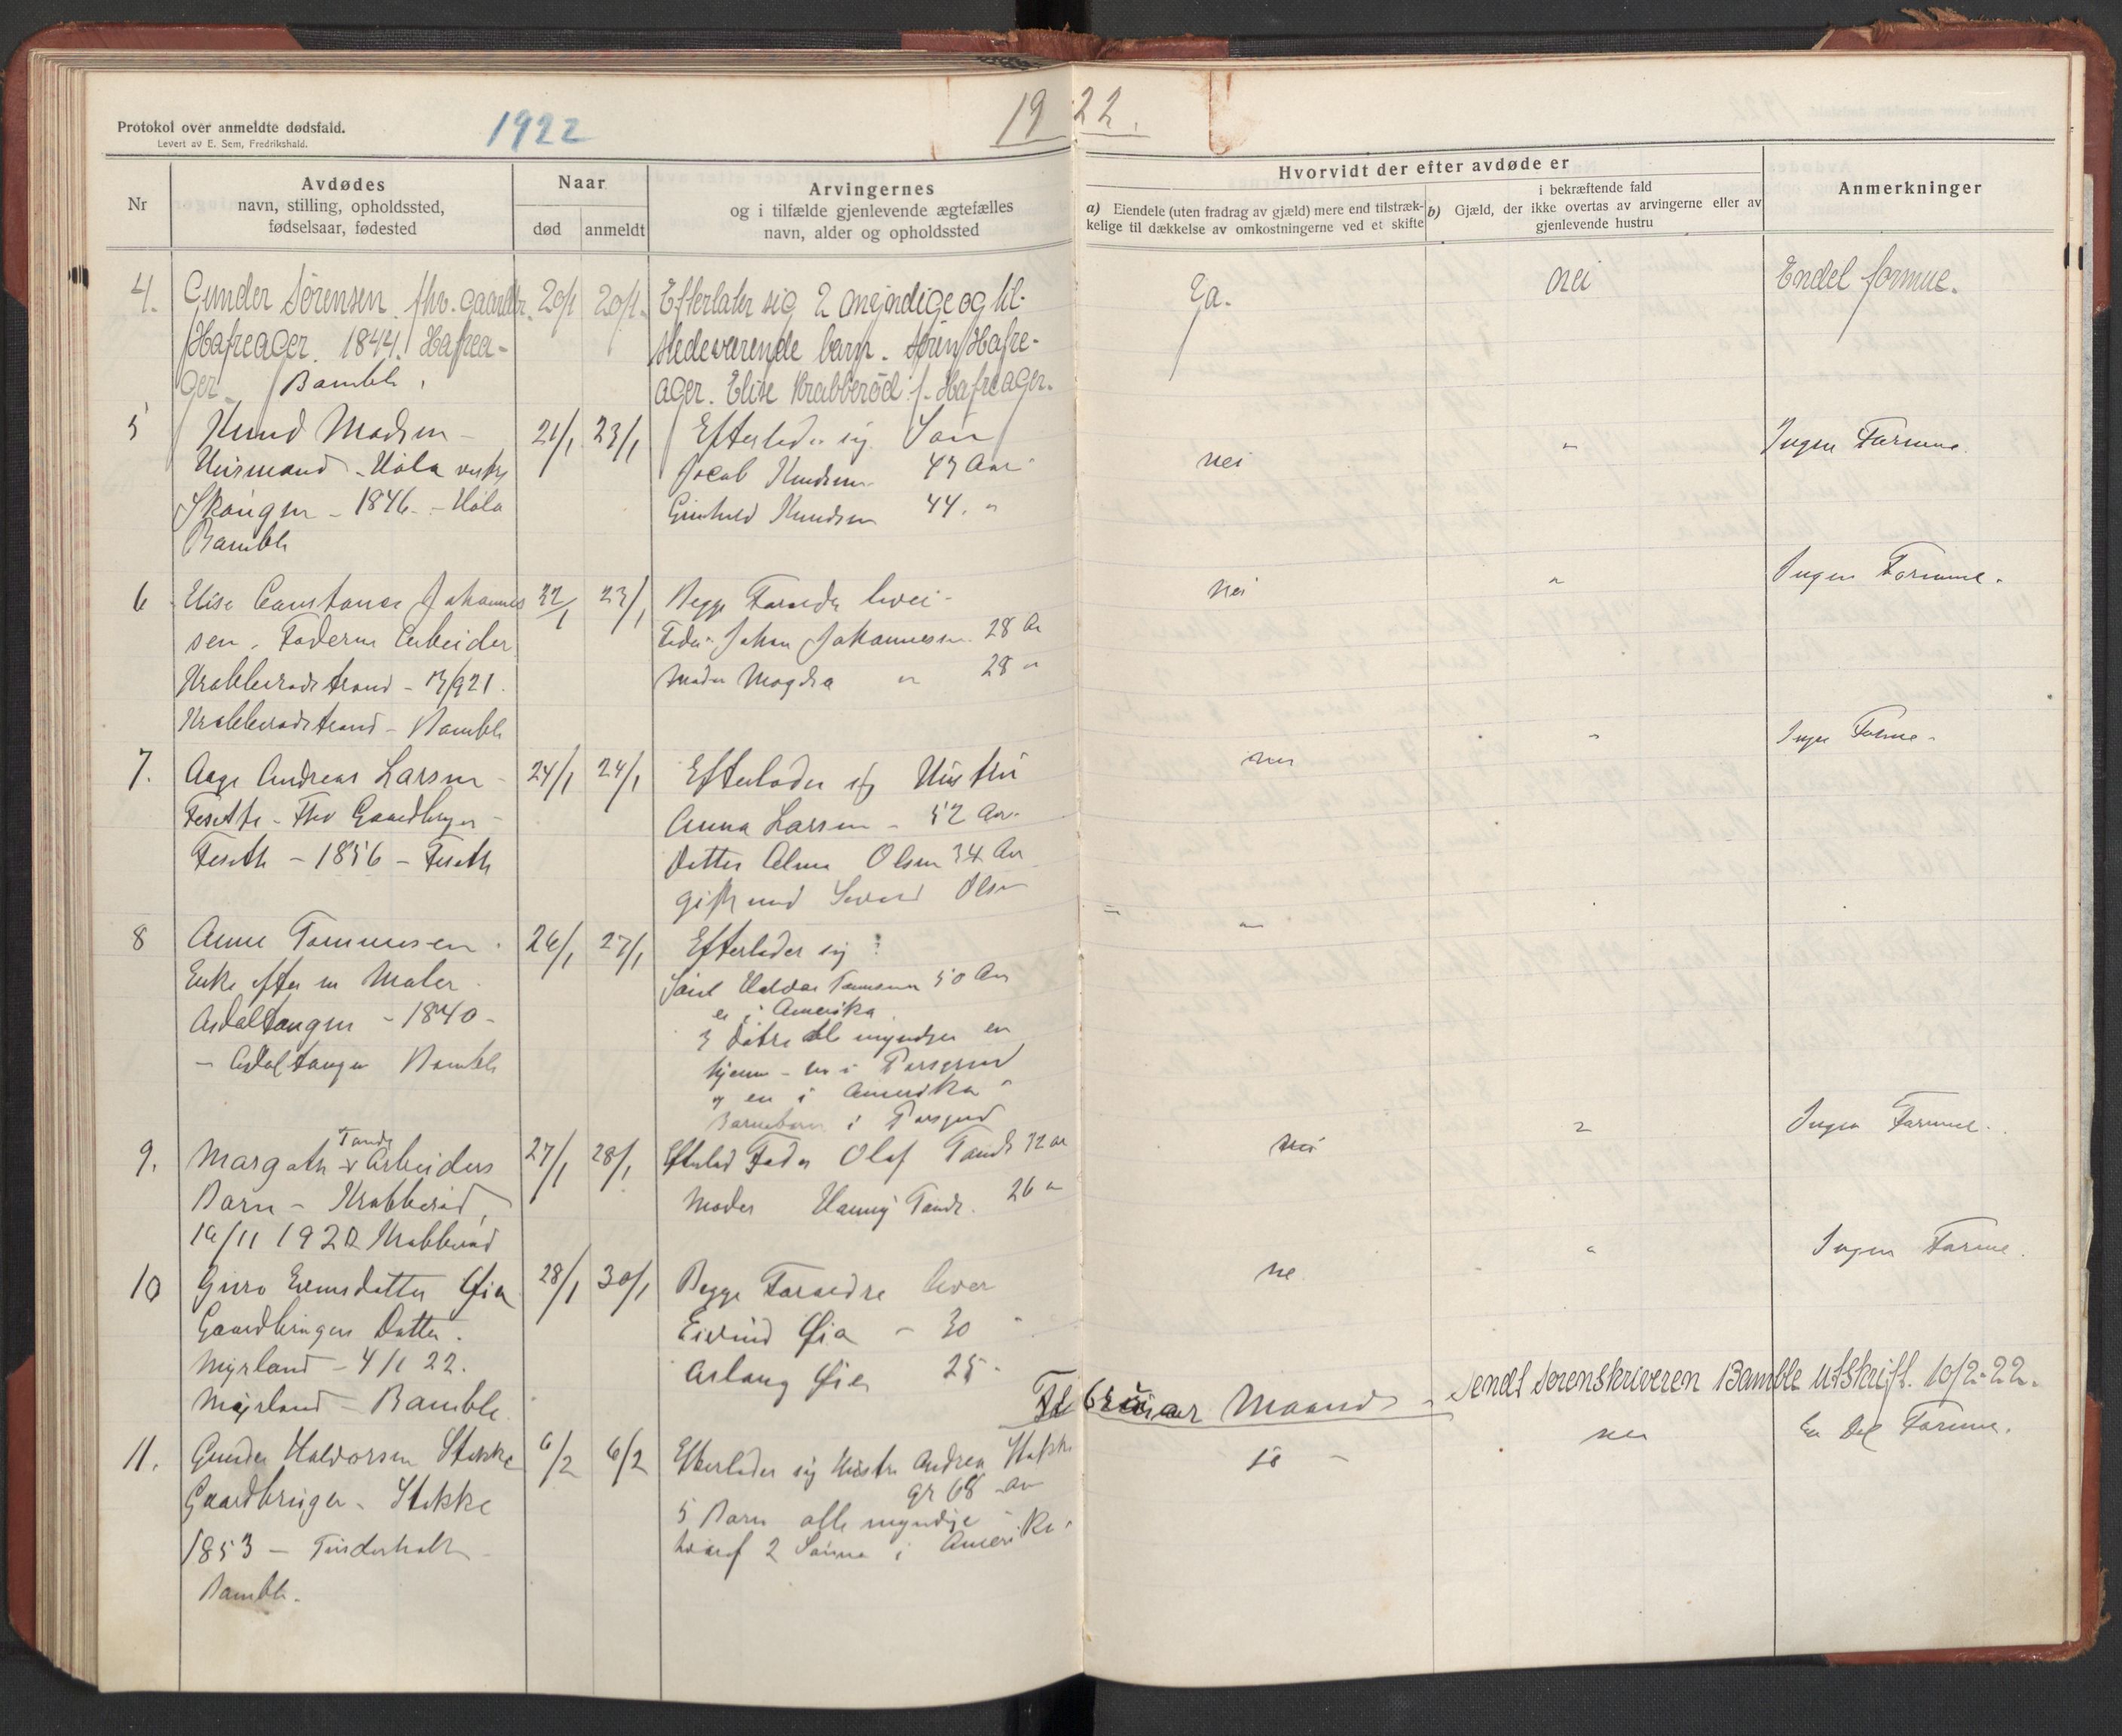 Protokol over anmeldte dødsfald.
Levert av E. Sem, Fredrikshald.
1922
1922.
Nr
Avdødes
navn, stilling, opholdssted,
fødselsaar, fødested
Naar
død
anmeldt
Arvingernes
og i tilfælde gjenlevende ægtefælles
navn, alder og opholdssted
Hvorvidt der efter avdøde er
a) Eiendele (uten fradrag av gjæld) mere end tilstræk-
kelige til dækkelse av omkostningerne ved et skifte
i bekræftende fald
b) Gjæld, der ikke overtas av arvingerne eller av
gjenlevende hustru
Anmerkninger
4. Gunder Sørensen. fhv. gaardbr. 20/1 20/1. Efterlater sig 2 myndige og til- Ja. Nei Endel formue.
Hafreager. 1844. Hafrea- stedeværende barn. Søren Hafre-
ger. Bamble. ager. Elise Krabberød f. Hafreager.
5 Knud Madsen - 21/1 23/1 Efterlader sig Søn nei " Ingen Formue.
Huusmand - Hola Jocob Knudsen 47 Aar
Skougen - 1846 - Hola Gunhild Knudsen 44. "
Bamble
6 Elise Constance Johannes 22/1 23/1 Begge Forældre nei " Ingen Formue.
sen. Faderen Arbeider Fader Johan Johannesen 28 Ar
Krabberødstrand - /921. Moder Magda " 28 "
Krabberødstrand - Bamble
7. Aage Andreas Larsen - 24/1 24/1 Efterlader sig Hustru nei " Ingen Formue.
Feseth - Fhv Gaardbruger - Anna Larsen - 52 Aar.
Feseth - 1856 - Feseth Datter Alma Olsen 34 Aar
gift med Olsen
8 Anne Tommesen. 26/1 27/1 Efterlader sig: " "
Enke efter en Maler. Søn Halvor Tommesen 50 Aar
Asdaltangen - 1840 - er i Amerika
- Asdaltangen Bamble 3 Døtre alle myndige en
hjeme - en i Porsgrund
og en i Amerika
Barnebarn i Porsgrund
9. Margoth Tande Arbeiders 27/1 28/1 Efterlad Fader Olaf Tande 32 ar nei " Ingen Formue.
Barn - Krabberød, Moder Hanny Tande. 26 "
/11 192 Krabberød
10 Guro Evensdatter Øia 28/1 30/1 Begge Foræeldre lever ne " Ingen Formue.
Gaardbrugers Datter. Eivind Øia - 30 "
Myrland - 4/1 22. Aslaug Øia 25 -
Myrland - Bamble.
Februar Maaned - Sendt Sorenskriveren Bamble Utskrift. 10/2-22.
11. Gunder Halvorsen Stokke 6/2 6/2 Efterlader sig Hustru Andrea Stokke ja - nei En Del Formue.
Gaardbruger - Stokke 68 aar
1853 - Tinderholt - 5 Barn alle myndige
Bamble. hvoraf 2 Sønner i Amerika.